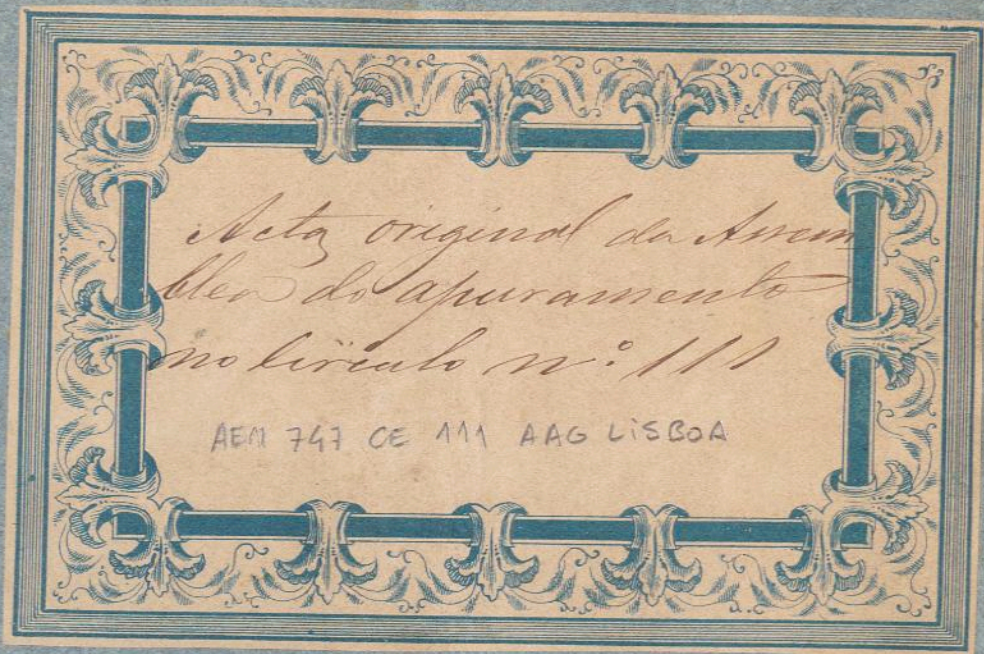 Acta original da Assem
blea do apuramento
no Circulo n.º 111
AEM 747 CE 111 AAG LiSBOA